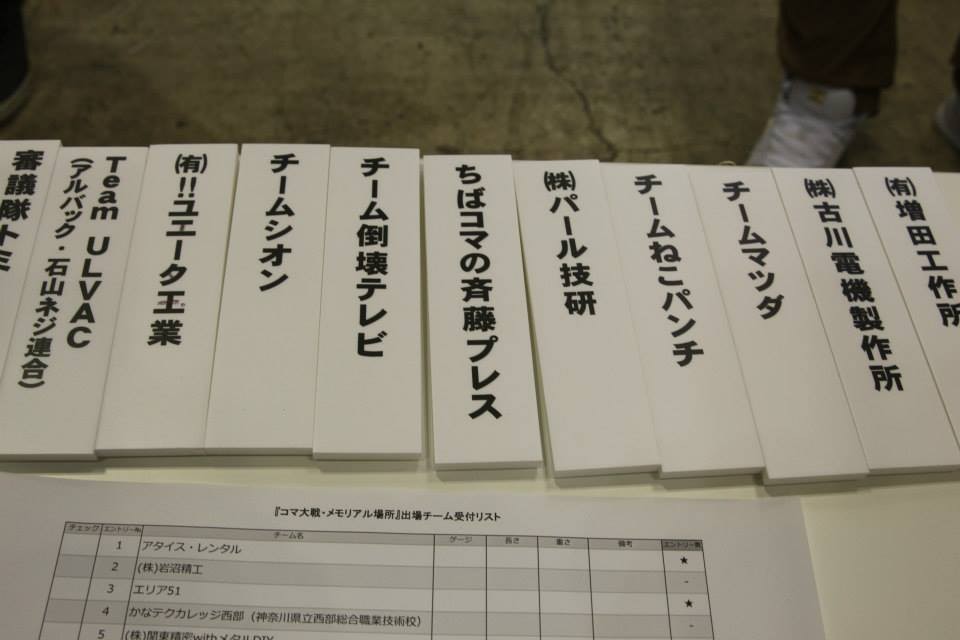 ㈲増田工作所
㈱古川電機製作所
チームマツダ
チームねこパンチ
㈱パール技研
ちばコマの斉藤プレス
チーム倒壊テレビ
チームシオン
㈲!!ユエータ工業
Team ULVAC
(アルバック・石山ネジ連合)
審議隊トミ
『コマ大戦・メモリアル場所』出場チーム受付リスト
チェック エントリー№ チーム名 ゲージ 長さ 重さ 備考
1 アタイス・レンタル ★
2 (株)岩沼精工 -
3 エリア51 ★
4 かなテクカレッジ西部（神奈川県立西部総合職業技術校） -
5 (株)関東精密withメタルDIY